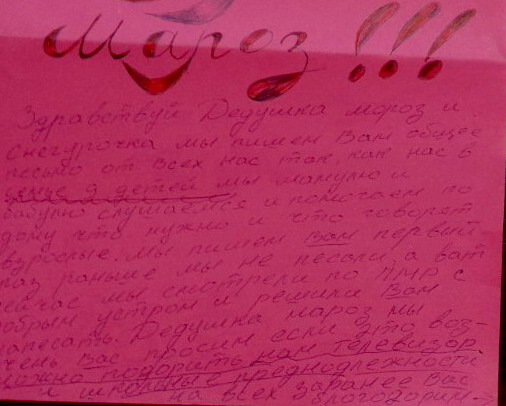 Мароз!!!
Здравствуй Дедушка мороз и
Снегурочка мы пишем Вам общее
письмо от всех нас так как нас в
семье 9 детей мы мамулю и
бабулю слушаемся и помогаем по
дому что нужно и что говорят
взрослые. Мы пишем Вам первый
раз раньше мы не песали а вот
сейчас мы смотрели по ПМР с
добрым утром и решили Вам
написать. Дедушка мороз мы
очень Вас просим если это воз-
можно подорить нам телевизор
и школьные
на всех заранее Вас
благодорим